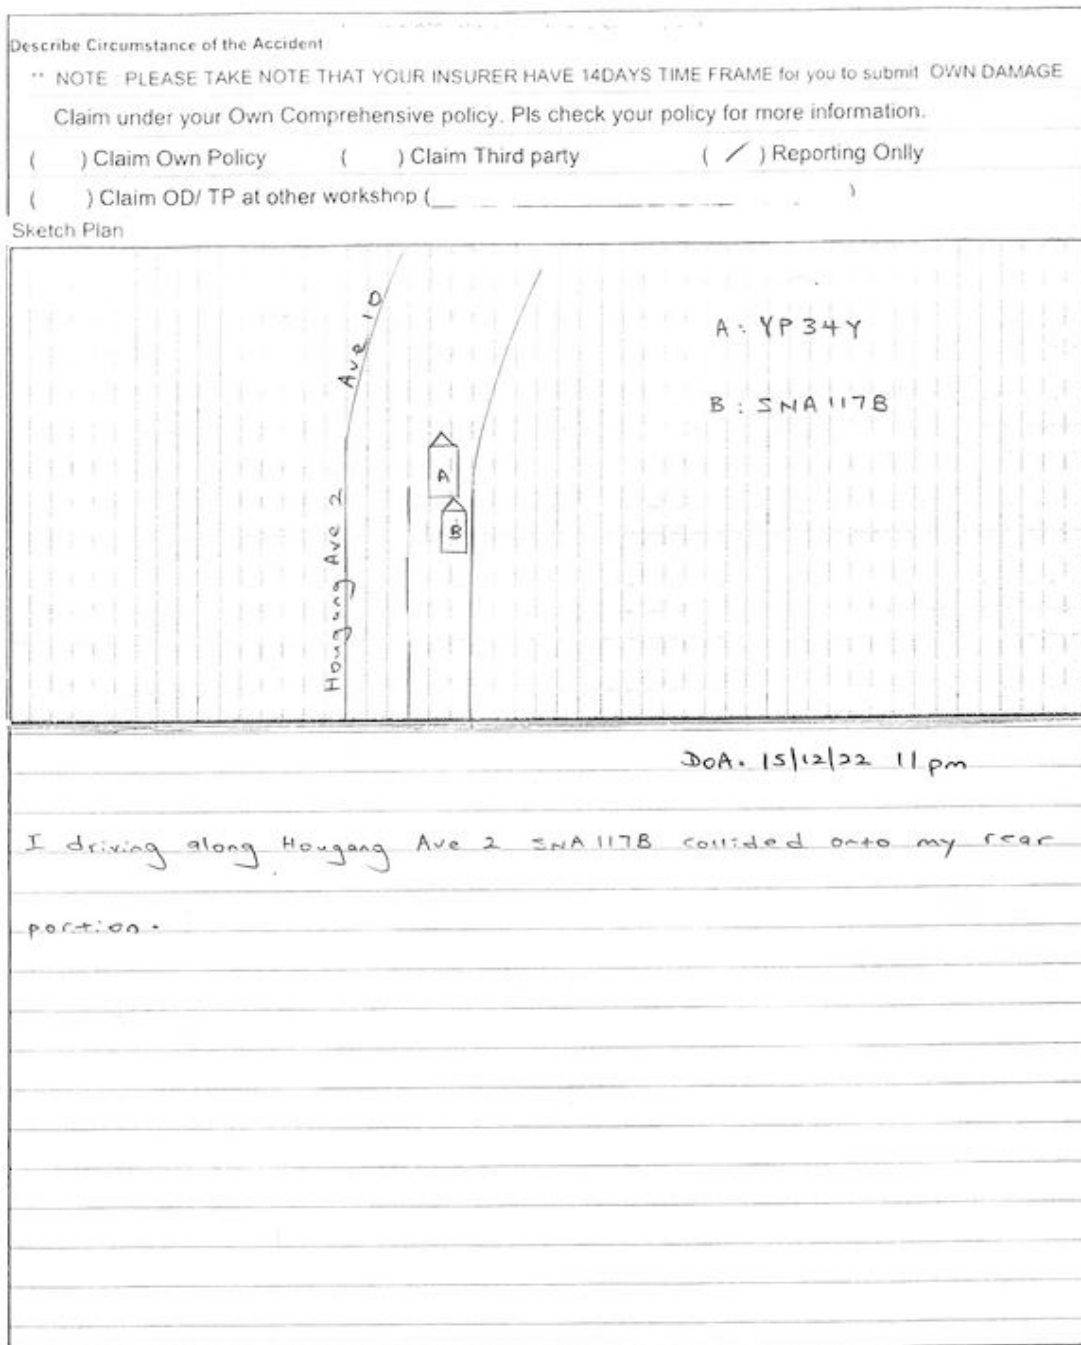 Describe Circumstance of the Accident
** NOTE : PLEASE TAKE NOTE THAT YOUR INSURER HAVE 14DAYS TIME FRAME for you to submit OWN DAMAGE
Claim under your Own Comprehensive policy. Pls check your policy for more information.
( ) Claim Own Policy ( ) Claim Third party ( / ) Reporting Onlly
( ) Claim OD/ TP at other workshop (____ )
Sketch Plan
Hougang Ave 2
Ave 10
A : YP34Y
B : SNA117B
A
B
DOA. 15/12/22 11pm
I driving along Hougang Ave 2 SNA117B collided onto my rear
portion.